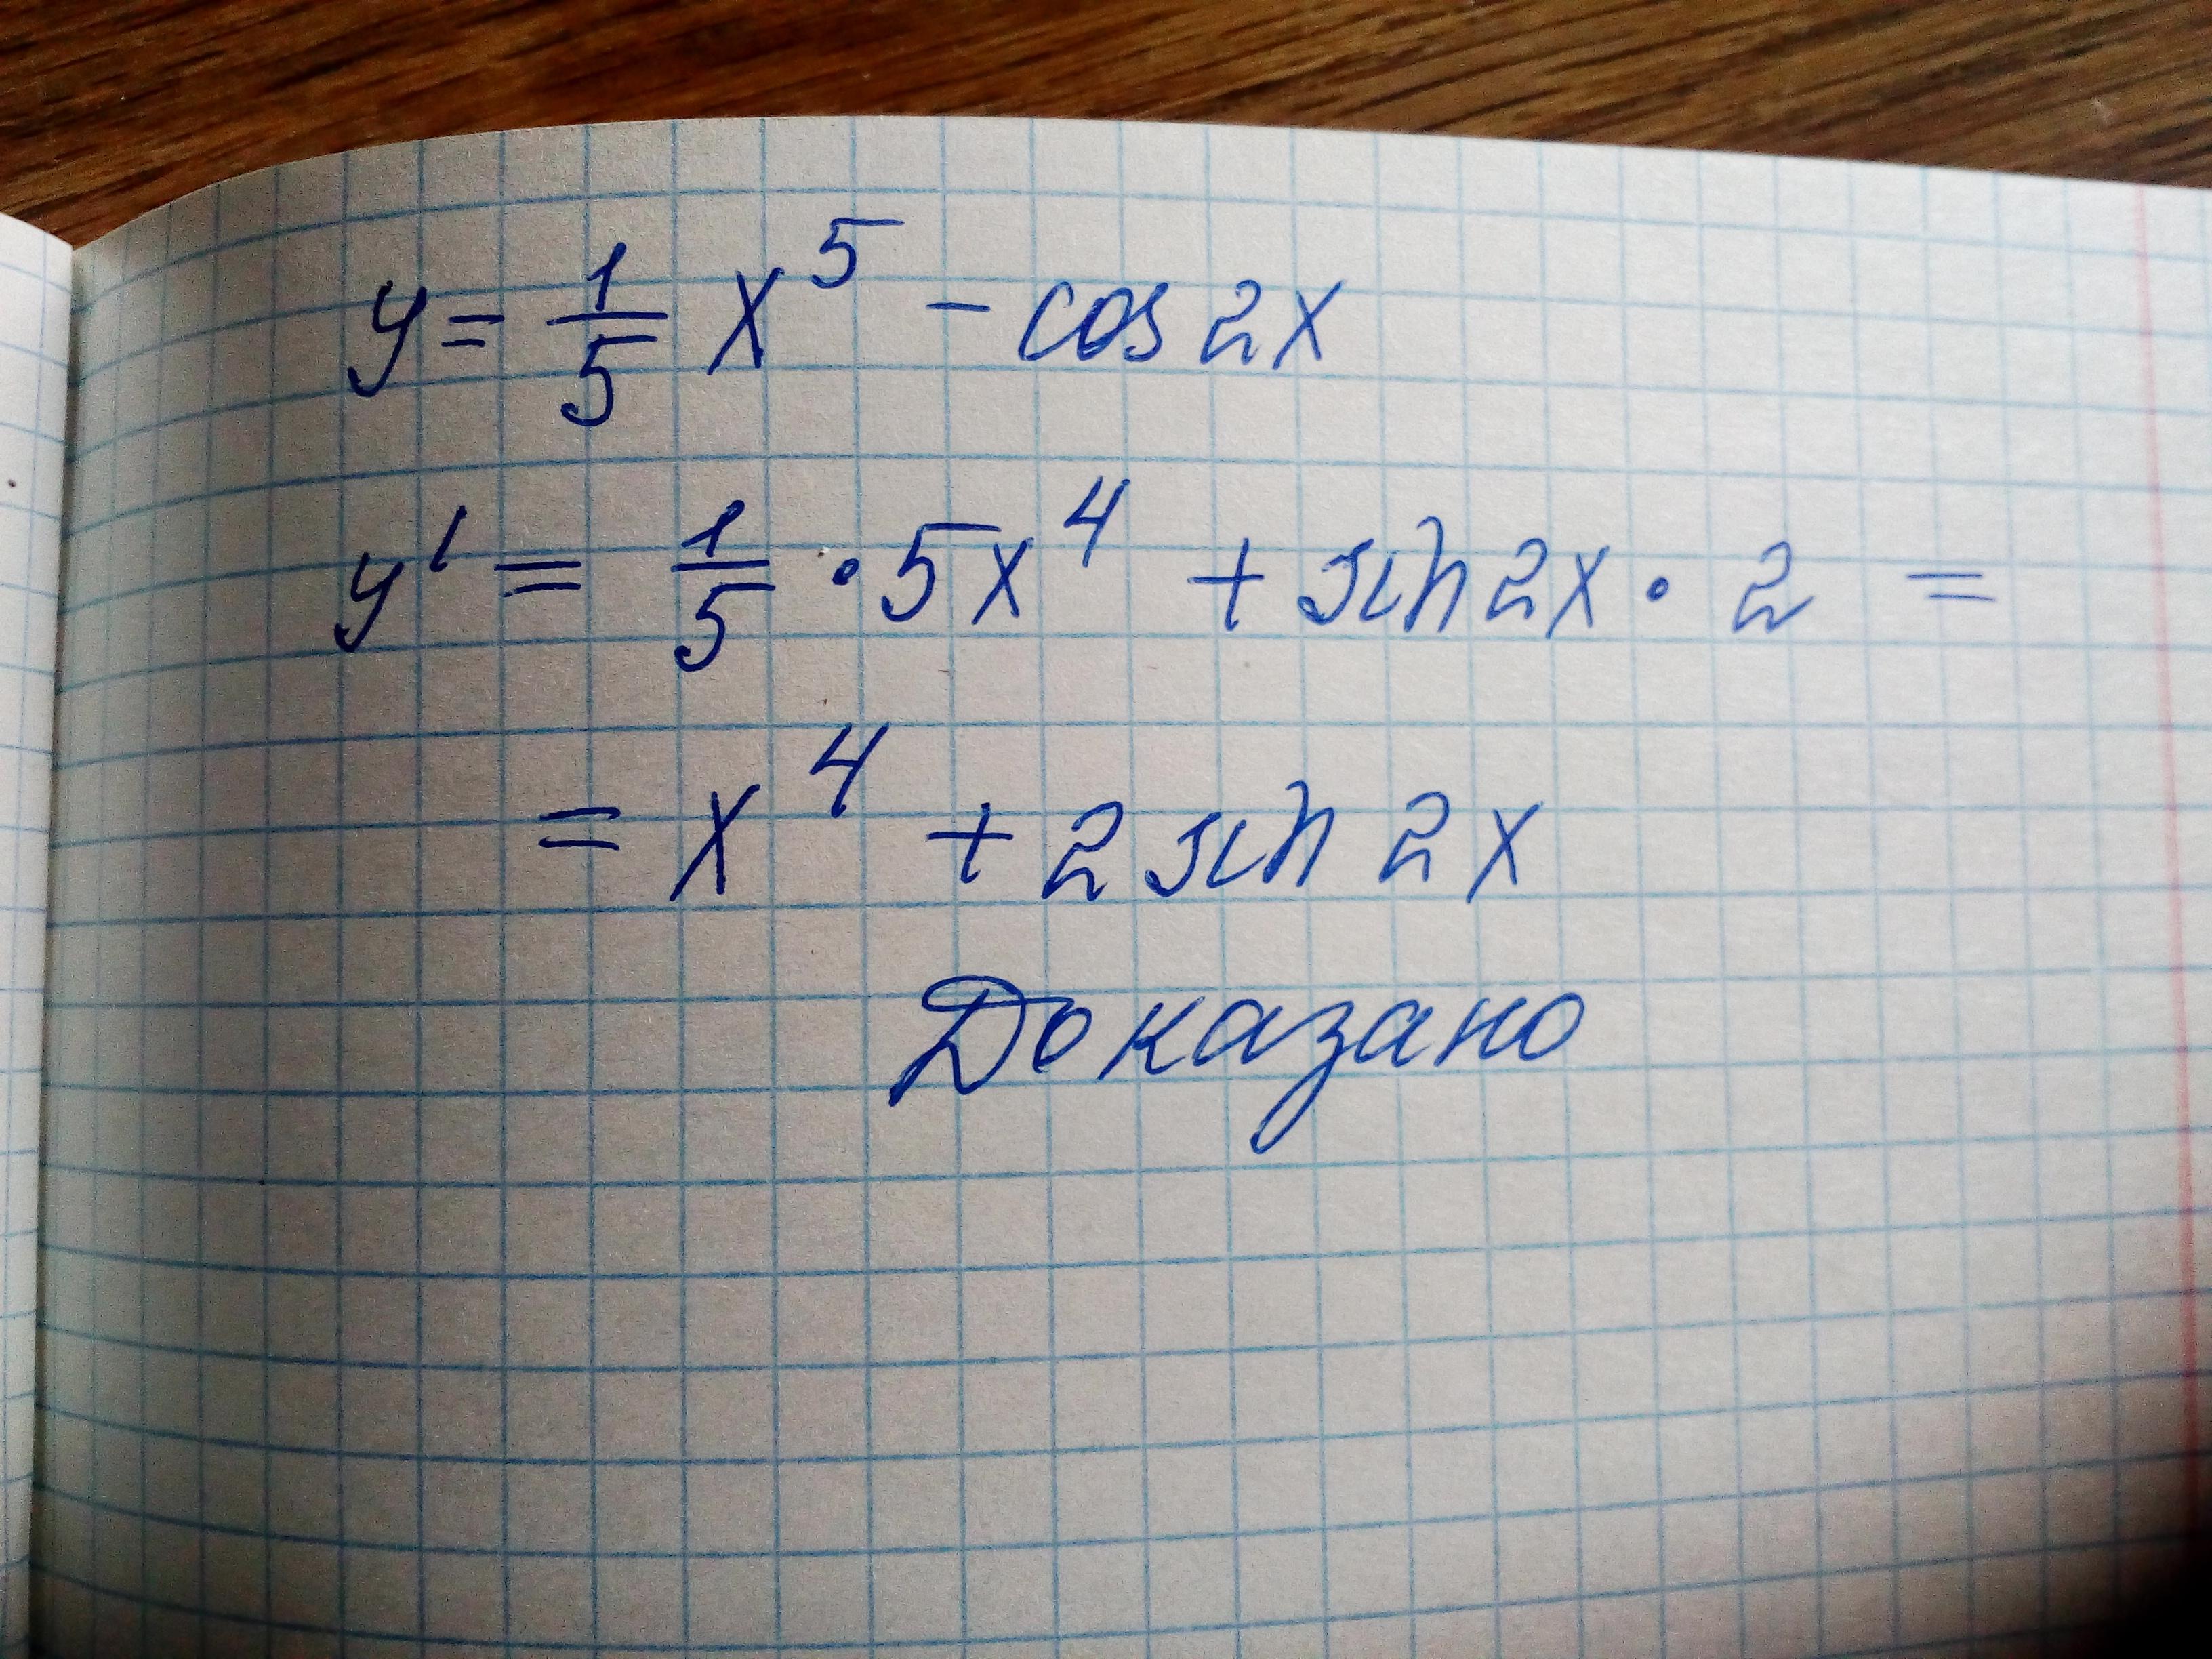 y = 1/5 x⁵ - cos 2x
y' = 1/5 · 5x⁴ + sin 2x · 2 =
= x⁴ + 2 sin 2x
Доказано